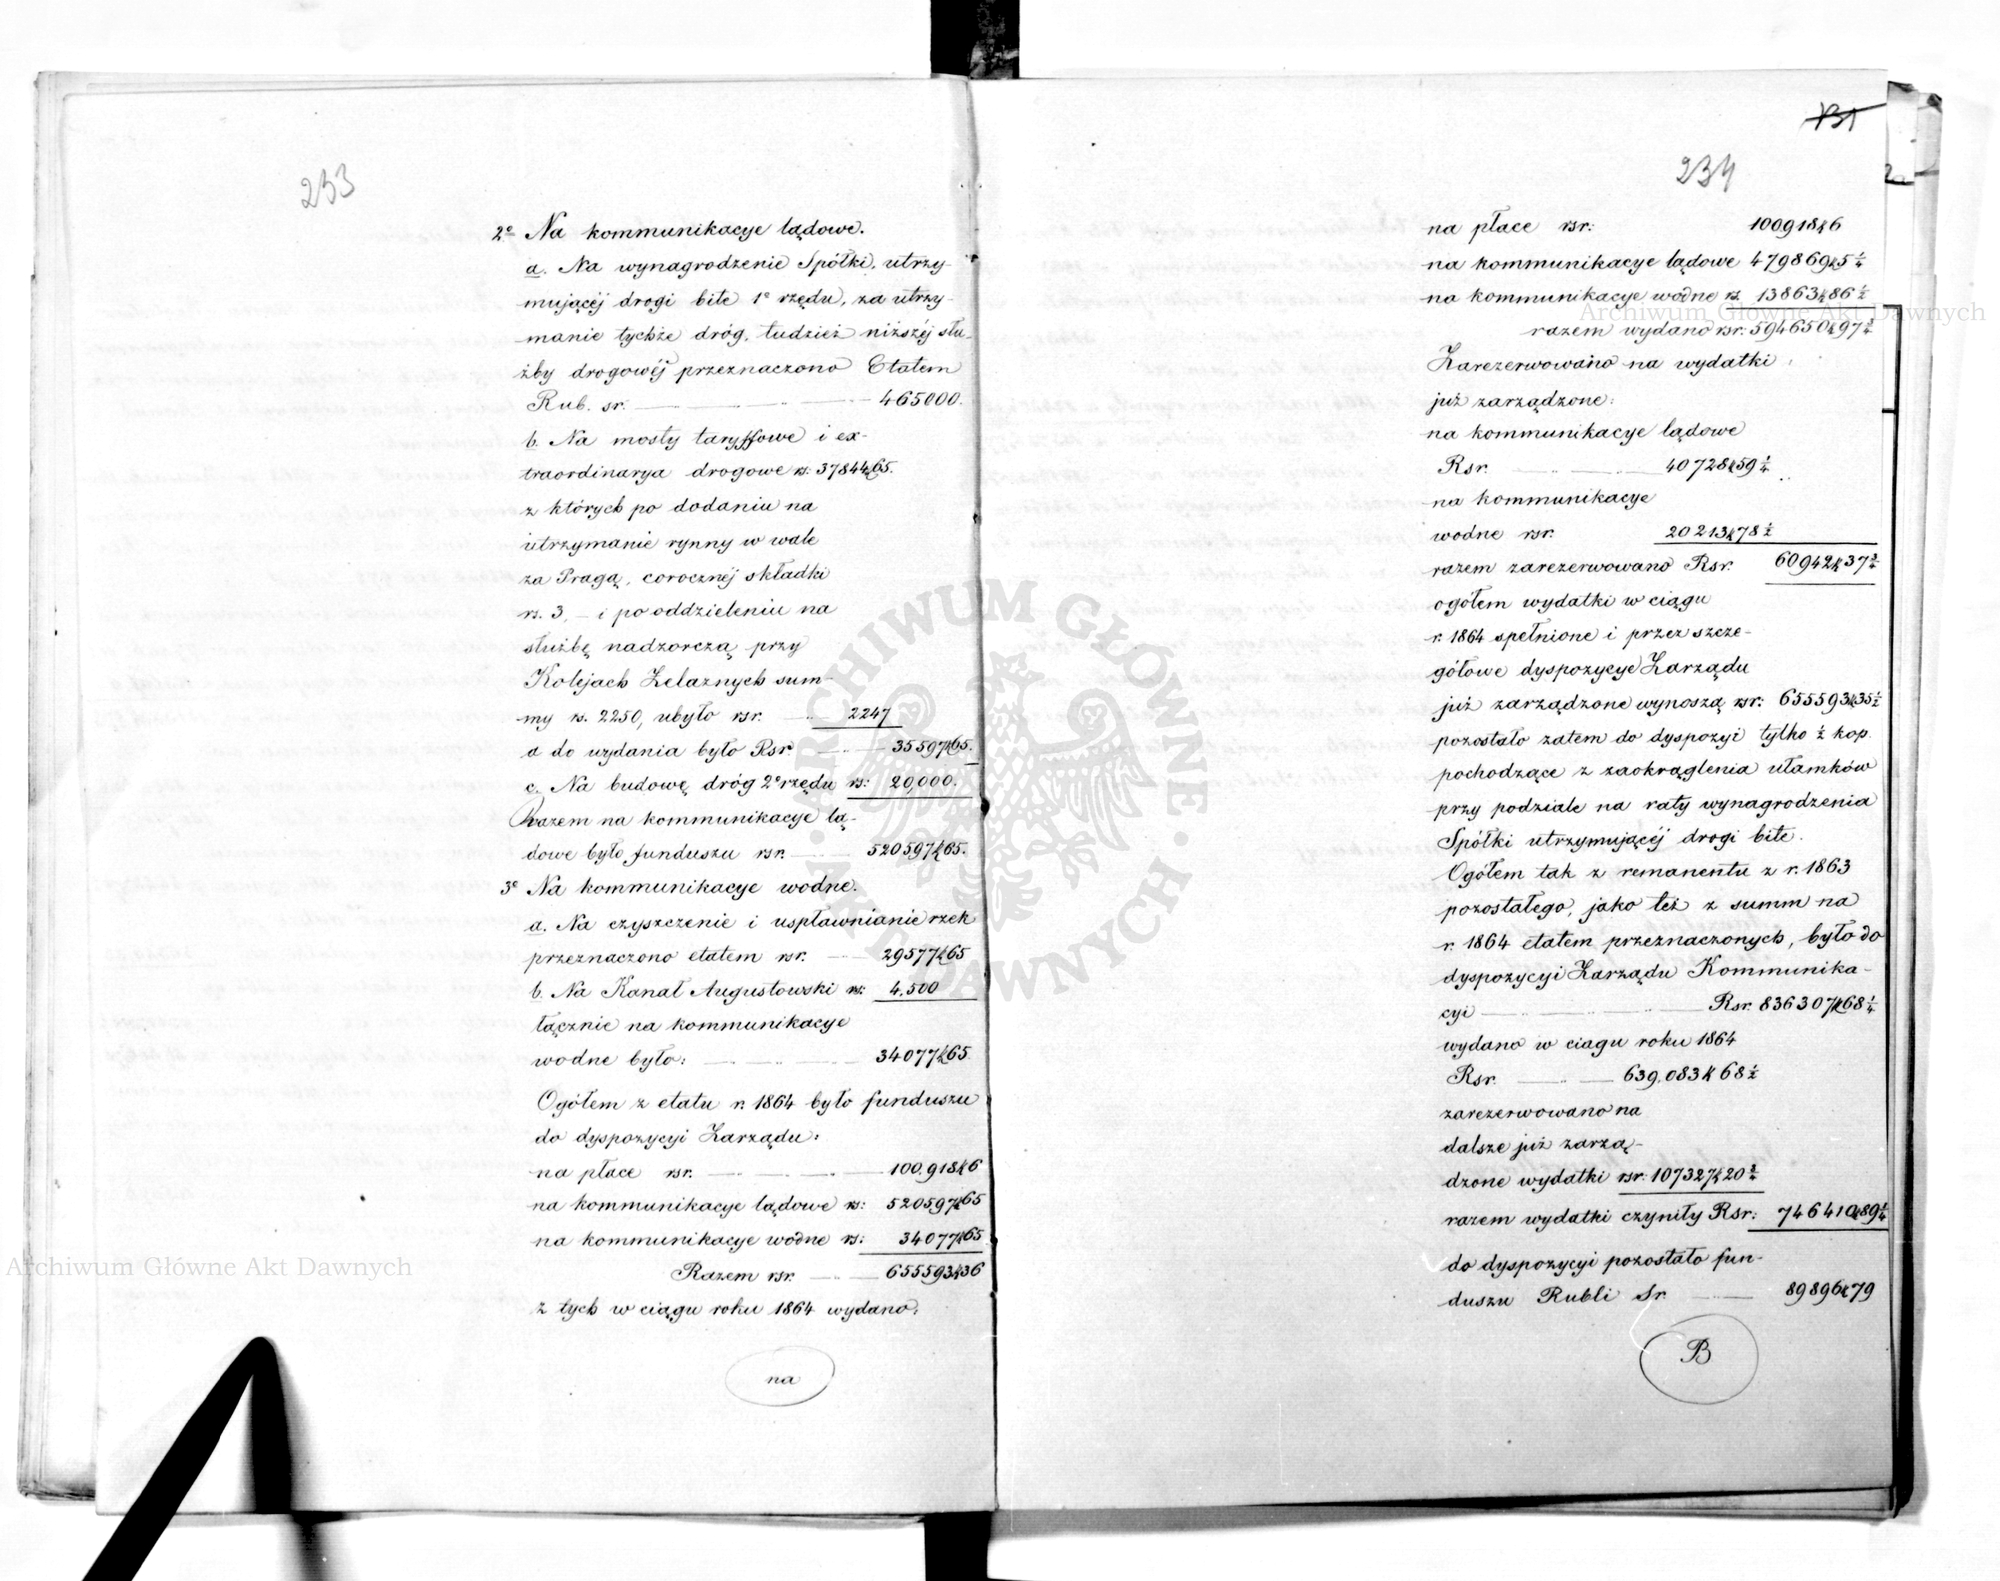 233
2º Na kommunikacye lądowe.
a. Na wynagrodzenie Spółki, utrzy-
mującéj drogi bite 1º rzędu, za utrzy-
manie tychże dróg, tudzież niższéj słu-
żby drogowéj przeznaczono Etatem
Rub. sr. 465000.
b. Na mosty taryffowe i ex-
traordinarya drogowe rs: 37844k65.
z których po dodaniu na
utrzymanie rynny w wale
za Pragą, corocznéj składki
rs. 3, – i po oddzieleniu na
służbę nadzorczą przy
Kolejach Żelaznych sum-
my rs. 2250, ubyło rsr. 2247
a do wydania było Rsr 35597k65.
c. Na budowę dróg 2º rzędu rs: 20,000.
Razem na kommunikacye lą-
dowe było funduszu rsr. 520597k65.
3º Na kommunikacye wodne.
a. Na czyszczenie i uspławnianie rzek
przeznaczono etatem rsr. 29577k65
b. Na Kanał Augustowski rs: 4,500
łącznie na kommunikacye
wodne było: 34077k65
Ogółem z etatu r. 1864 było funduszu
do dyspozycyi Zarządu:
na płace rsr. 100,918k6
na kommunikacye lądowe rs: 520597k65
na kommunikacye wodne rs: 34077k65
Razem rsr. 655593k36
z tych w ciągu roku 1864 wydano:
na
131
234
na płace rsr: 100918k6
na kommunikacye lądowe 479869k5¼
na kommunikacye wodne rs. 13863k86½
razem wydano rsr: 594650k97¾
Zarezerwowano na wydatki
już zarządzone:
na kommunikacye lądowe
Rsr. 40728k59¼
na kommunikacye
wodne rsr. 20213k78½
razem zarezerwowano Rsr. 60942k37¾
ogółem wydatki w ciągu
r. 1864 spełnione i przez szcze-
gółowe dyspozycye Zarządu
już zarządzone wynoszą rsr: 655593k35½
pozostało zatem do dyspozyi tylko ½ kop.
pochodzące z zaokrąglenia ułamków
przy podziale na raty wynagrodzenia
Spółki utrzymującéj drogi bite.
Ogółem tak z remanentu z r. 1863
pozostałego, jako też z summ na
r. 1864 etatem przeznaczonych, było do
dyspozycyi Zarządu Kommunika-
cyi Rsr. 836307k68¼
wydano w ciagu roku 1864
Rsr. 639,083k68½
zarezerwowano na
dalsze już zarzą-
dzone wydatki rsr: 107327k20¾
razem wydatki czyniły Rsr: 746410k89¼
do dyspozycyi pozostało fun-
duszu Rubli Sr. 89896k79
B
Archiwum Główne Akt Dawnych
Archiwum Główne Akt Dawnych
ARCHIWUM GŁÓWNE
AKT DAWNYCH